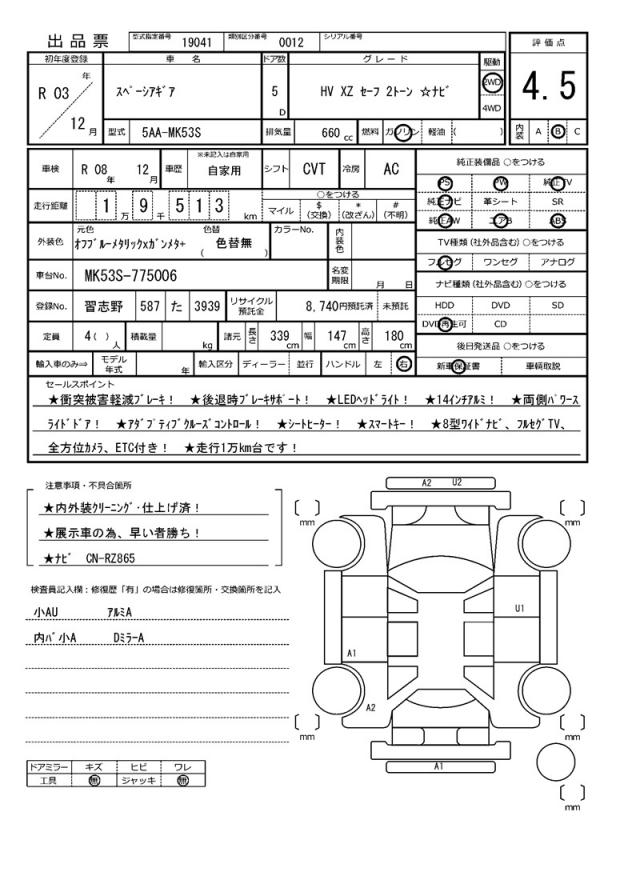 出品票 型式指定番号 19041 類別区分番号 0012 シリアル番号
初年度登録 車名 ドア数 グレード 駆動 評価点
R 03 年 12 月 スペーシアギア 5 D HV XZ セーフ 2トーン ☆ナビ 2WD 4WD 4.5
型式 5AA-MK53S 排気量 660 cc 燃料 ガソリン 軽油 ( ) 内装 A B C
車検 R 08 年 12 月 車歴 ※未記入は自家用 自家用 シフト CVT 冷房 AC 純正装備品 ○をつける
PS PW 純正TV
走行距離 1 万 9 千 5 1 3 km ○をつける
マイル $ (交換) * (改ざん) # (不明)
純正ナビ 革シート SR
純正AW エアB ABS
外装色 元色 オフブルーメタリックxガンメタ+ 色替 色替無 ( ) カラーNo. 内装色
TV種類 (社外品含む) ○をつける
フルセグ ワンセグ アナログ
車台No. MK53S-775006 名変期限 月 日
ナビ種類 (社外品含む) ○をつける
登録No. 習志野 587 た 3939 リサイクル預託金 8,740円預託済 未預託
HDD DVD SD
DVD再生可 CD
定員 4( ) 人 積載量 kg 諸元 長さ 339 cm 幅 147 cm 高さ 180 cm
後日発送品 ○をつける
輸入車のみ⇒ モデル年式 年 輸入区分 ディーラー 並行 ハンドル 左 右 新車保証書 車輌取説
セールスポイント
★衝突被害軽減ブレーキ! ★後退時ブレーキサポート! ★LEDヘッドライト! ★14インチアルミ! ★両側パワース
ライドドア! ★アダプティブクルーズコントロール! ★シートヒーター! ★スマートキー! ★8型ワイドナビ、フルセグTV、
全方位カメラ、ETC付き! ★走行1万km台です!
注意事項・不具合箇所
★内外装クリーニング・仕上げ済!
★展示車の為、早い者勝ち!
★ナビ CN-RZ865
検査員記入欄:修復歴「有」の場合は修復箇所・交換箇所を記入
小AU アルミA
内バ小A DミラーA
ドアミラー キズ ヒビ ワレ
工具 無 ジャッキ 無
A2 U2
mm mm
U1
A1
A2
mm mm
A1
mm